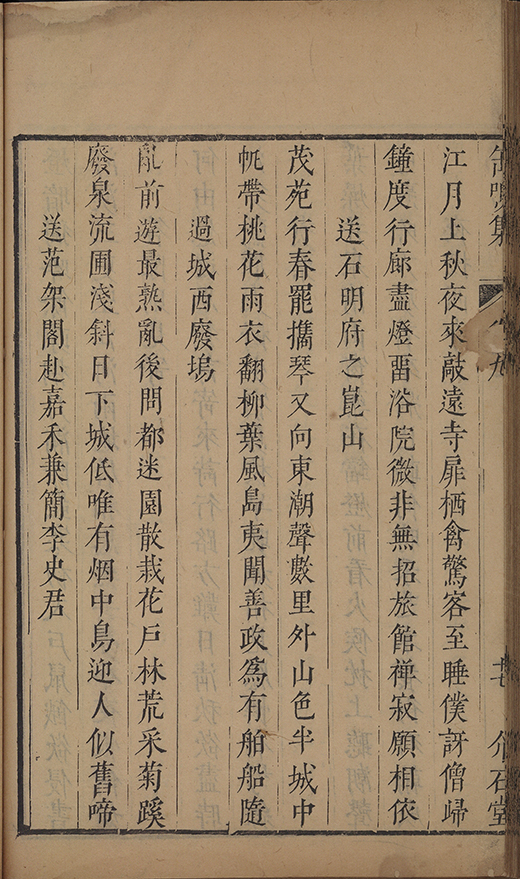 缶鳴集
卷九
七
介石堂
江月上秋夜來敲遠寺扉栖禽驚客至睡僕訝僧歸
鐘度行廊盡燈留浴院微非無招旅館禅寂願相依
送石明府之崑山
茂苑行春罷攜琴又向東潮聲數里外山色半城中
帆帶桃花雨衣翻柳葉風島夷聞善政爲有舶船隨
過城西廢塢
亂前遊最熟亂後問都迷園散栽花戶林荒采菊蹊
廢泉流圃淺斜日下城低唯有烟中鳥迎人似舊啼
送范架閣赴嘉禾兼簡李史君